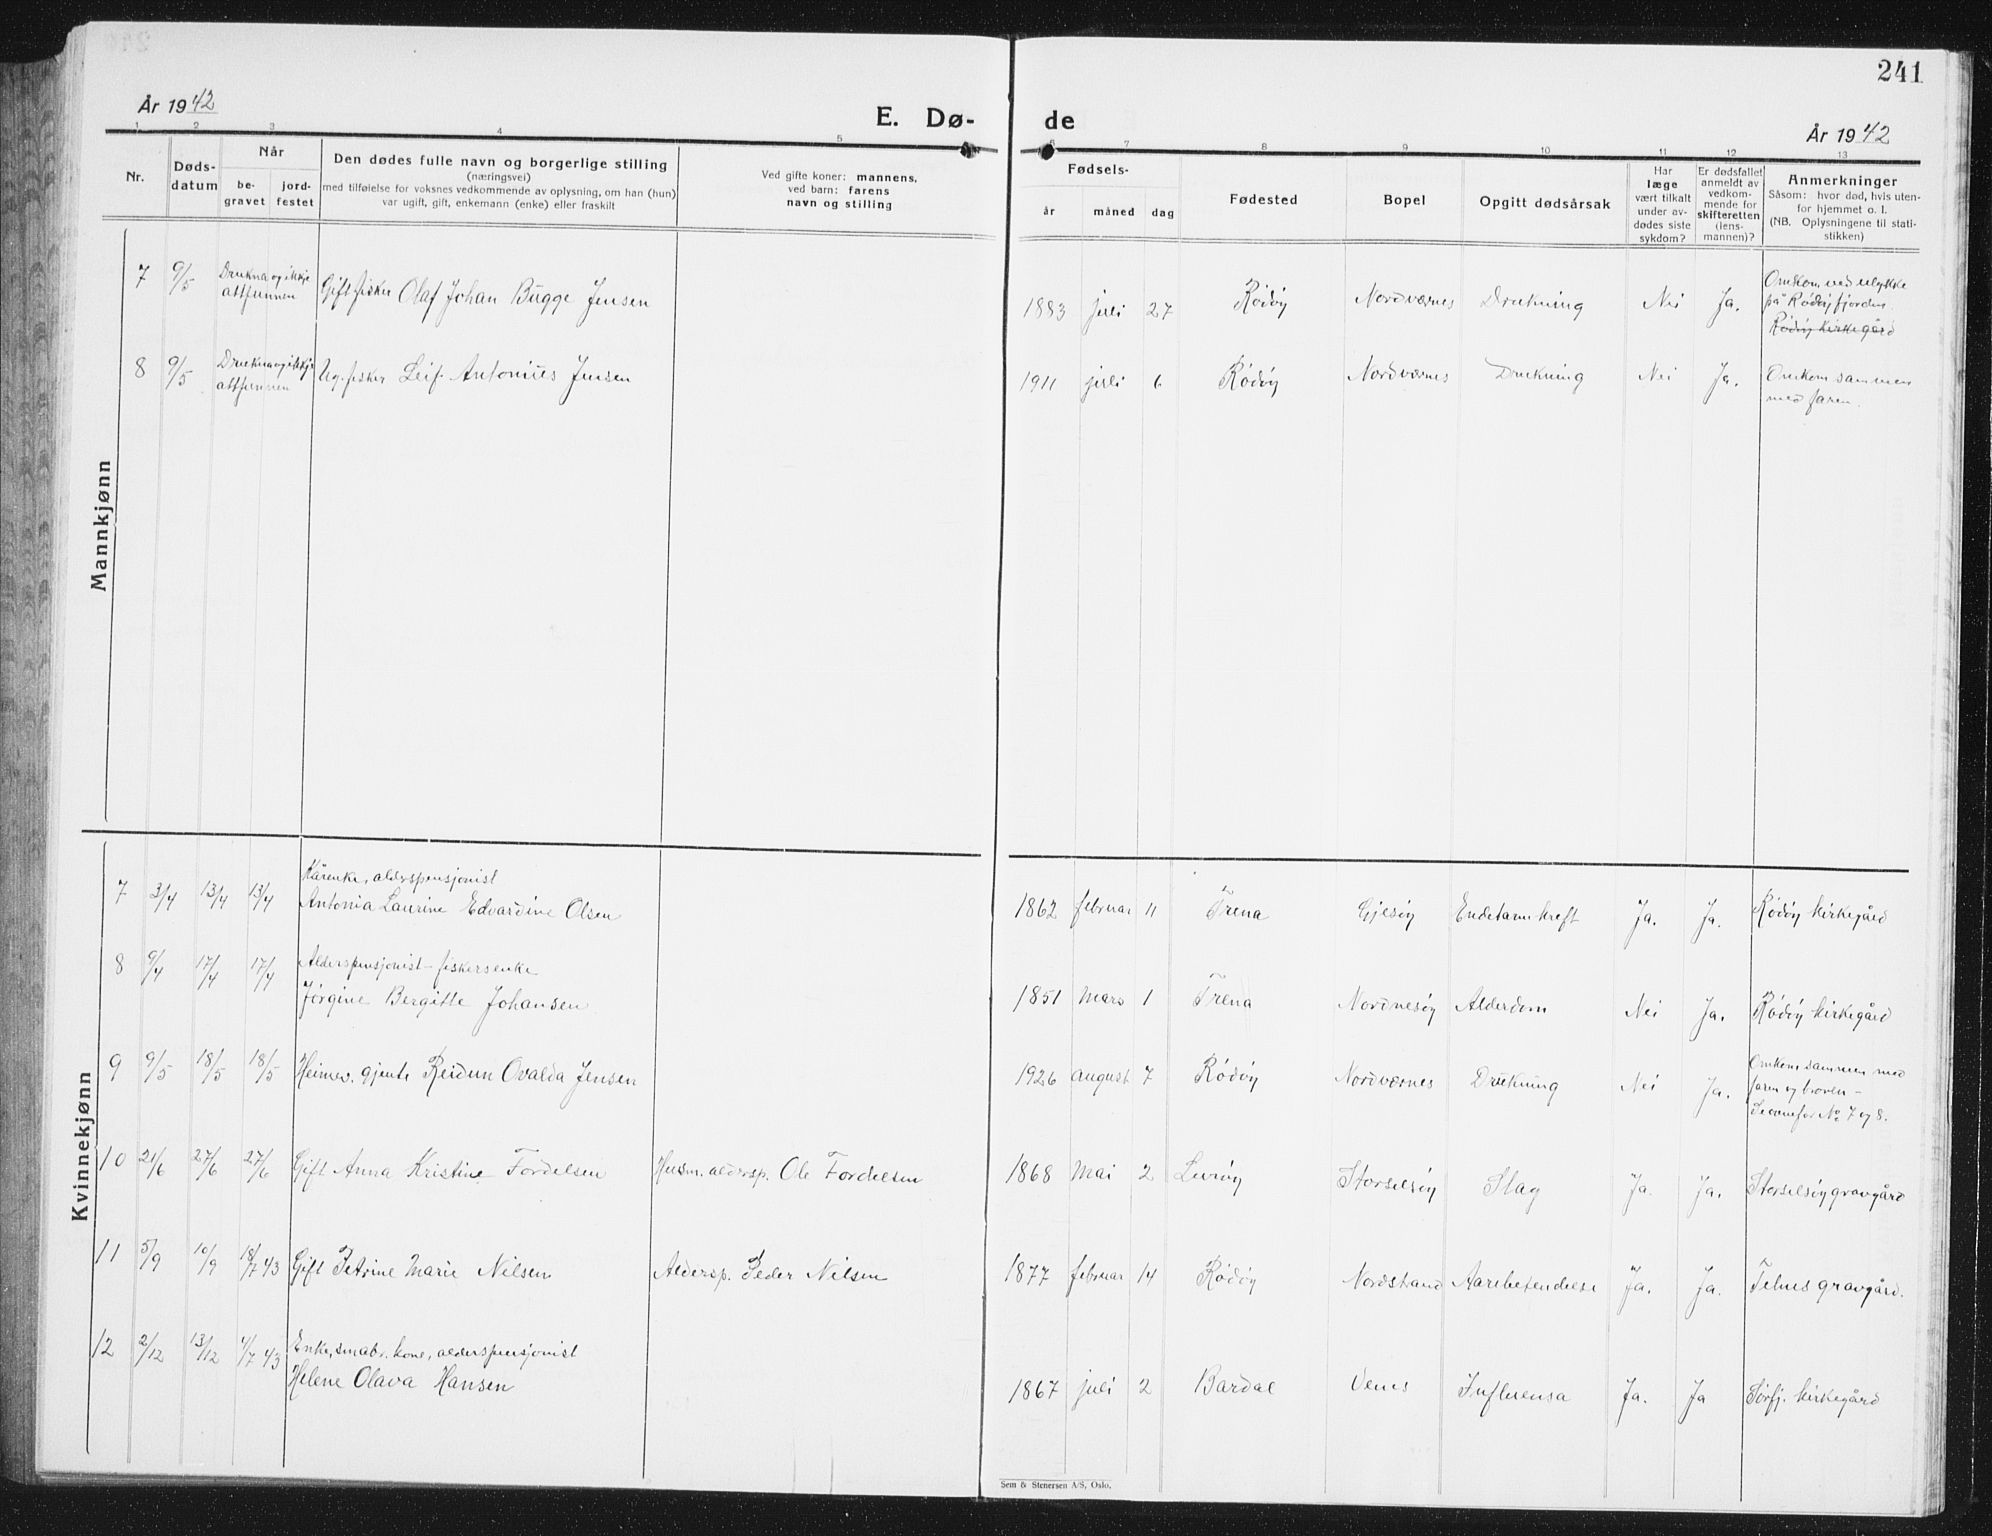 241
År 1942
E. Dø-
de
År 1942
1 2 3 4 5 6 7 8 9 10 11 12 13
Nr.
Døds-
datum
Når
be-
gravet
jord-
festet
Den dødes fulle navn og borgerlige stilling
(næringsvei)
med tilføielse for voksnes vedkommende av oplysning, om han (hun)
var ugift, gift, enkemann (enke) eller fraskilt
Ved gifte koner: mannens,
ved barn: farens
navn og stilling
Fødsels-
år måned dag
Fødested
Bopel
Opgitt dødsårsak
Har
læge
vært tilkalt
under av-
dødes siste
sykdom?
Er dødsfallet
anmeldt av
vedkom-
mende for
skifteretten
(lens-
mannen)?
Anmerkninger
Såsom: hvor død, hvis uten-
for hjemmet o. l.
(NB. Oplysningene til stati-
stikken)
Mannkjønn
7 9/5 Drukna og ikkje
attfunnen
Gift fisker Olaf Johan Bugge Jensen
1883 juli 27 Rödöy Nordværnes Drukning Nei Ja.
Omkom ved ulykke
på Rödöyfjorden.
Rödöy kirkegård
8 9/5 Drukna og ikkje
attfunnen
Ug. fisker Leif Antonius Jensen
1911 juli 6 Rödöy Nordværnes Drukning Nei Ja.
Omkom sammen
med faren.
Kvinnekjønn
Kårenke, alderspensjonist
7 3/4 13/4 13/4 Antonia Laurine Edvardine Olsen
1862 februar 11 Trena Gjesöy Endetarmkreft Ja. Ja. Rödöy kirkegård
Alderspensjonist - fiskersenke
8 9/4 17/4 17/4 Jörgine Bergitte Johansen
1851 Mars 1 Trena Nordnesöy Alderdom Nei Ja. Rödöy kirkegård
9 9/5 18/5 18/5 Heimev. gjente Reidun Ovalda Jensen
1926 august 7 Rödöy Nordværnes Drukning Nei Ja.
Omkom sammen med
faren og broren -
Se ovenfor No 7 og 8.
10 21/6 27/6 27/6 Gift Anna Kristine Fordelsen Husm. aldersp. Ole Fordelsen
1868 Mai 2 Luröy Storselsöy Slag Ja. Ja. Storselsöy gravgård
11 5/9 10/9 18/7 43 Gift Petrine Marie Nilsen Aldersp. Peder Nilsen
1877 februar 14 Rödöy Nordstrand Aarebetendelse Ja. Ja. Telnes gravgård.
Enke, småbr. kone, alderspensjonist
12 2/12 13/12 4/7 43 Helene Olava Hansen
1867 juli 2 Bardal Venes Influensa Ja. Ja Sörfj. kirkegård
Sem & Stenersen A/S, Oslo.